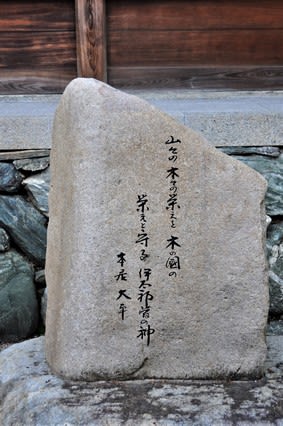 山々の木々の栄えを木の國の
栄えを守る伊太祁曽の神
本居大平